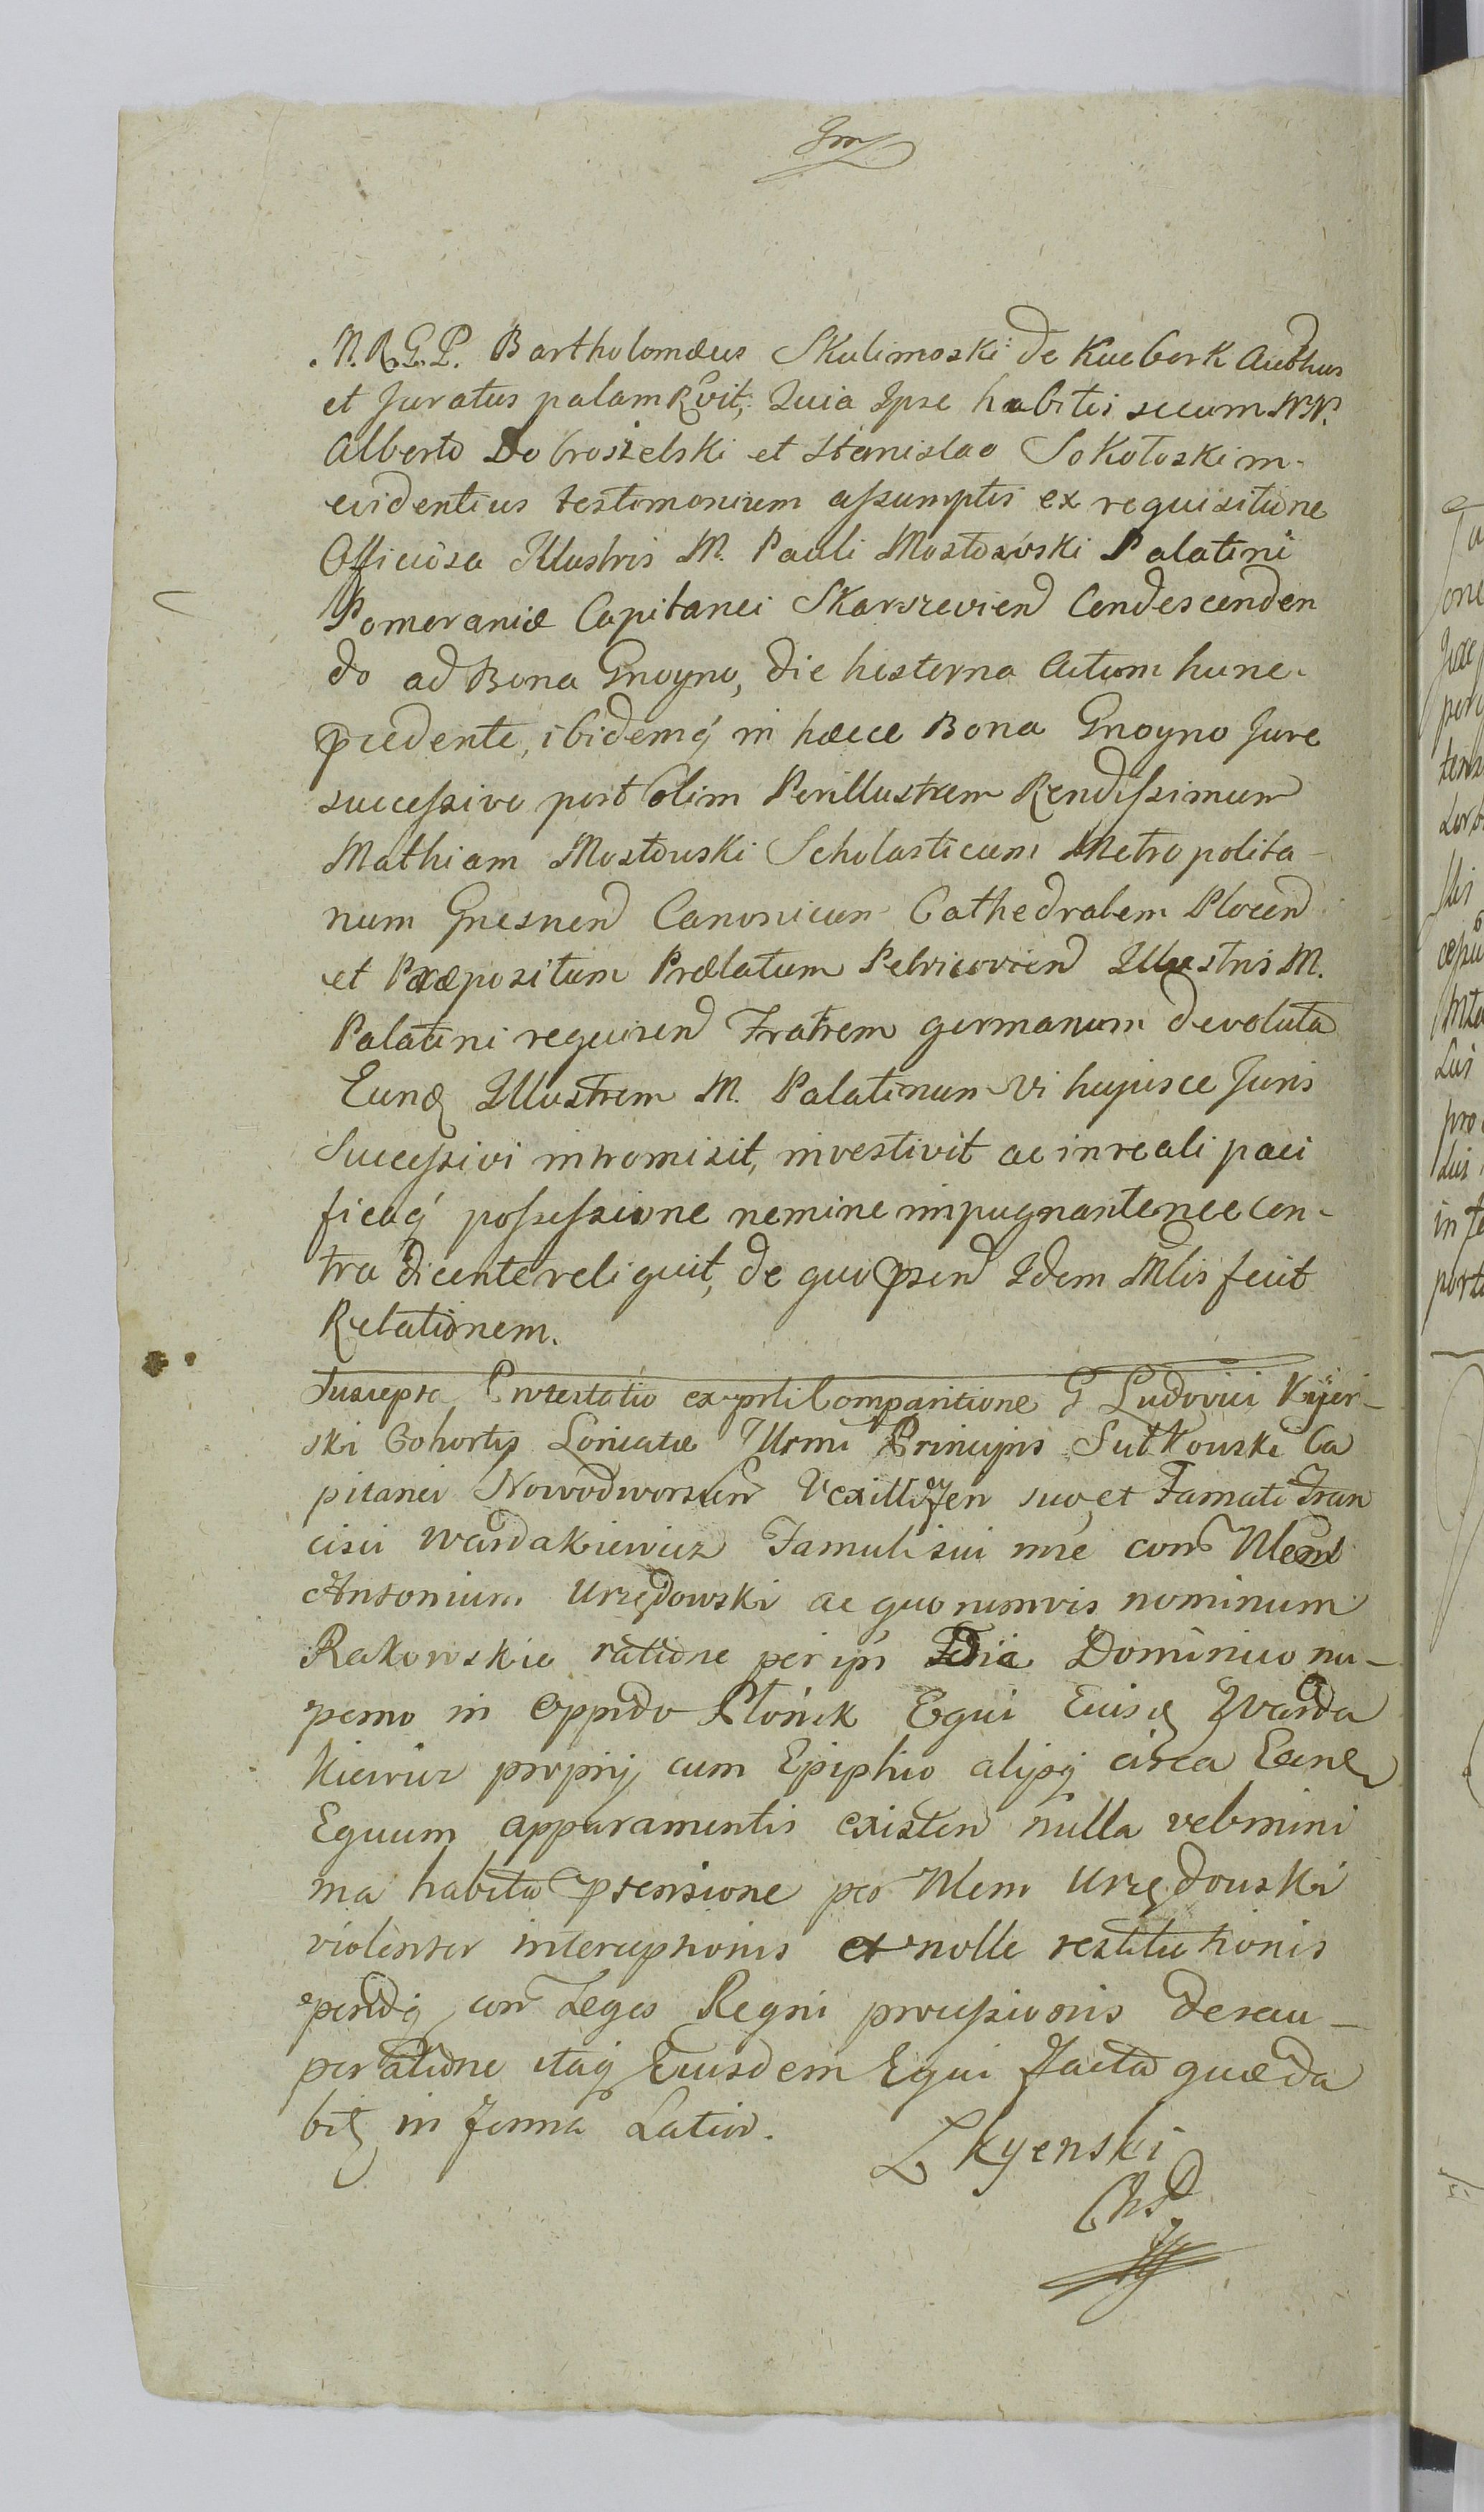 M. R. G. P. Bartholomæus Skulimoski de Kucbork Authus
et Juratus palam Rvit, Quia Ipse habitis secum NN.
Alberto Dobrosielski et Stanislao Sokołoski in
evidentius testimonium assumptis ex requisitione
Officiosa Illustris M. Pauli Mostowski Palatini
Pomeraniæ Capitanei Skarszevien Condescenden
do ad Bona Gnoyno, die hesterna Actum hunc
præcedente, ibidemq in hæcce Bona Gnoyno Jure
successivo post olim Perillustrem Rendissimum
Mathiam Mostowski Scholasticum Metropolita-
num Gnesnen Canonicum Cathedralem Plocen
et Præpositum Prælatum Petricovien Illustris M.
Palatini requiren Fratrem germanum devoluta
Eund Illustrem M. Palatinum vi hujusce Juris
Successivi intromisit, investivit ac in reali paci
ficaq possessione nemine impugnante nec con-
tra dicente reliquit, de quo præsen Idem Mlis fecit
Relationem.
Suscepta Protestatio ex prtli Comparitione G Ludovici Kyer-
ski Cohortis Loricatæ Illrmi Principis Sułkowski Ca
pitanei Nowodworscen Vexilliferi suo, et Famati Fran
cisci Wardakiewicz Famuli sui nne con Mlem
Antonium Urzędowski ac quorumvis nominum
Rakowskie ratione per ips Dominico nu-
pemo in Oppido Płońsk Equi Eiusd Warda
kiewicz proprij cum Ephiphio alijsq circa Eund
Equum apparamentis existen nulla vel mini
ma habita prtensione per Mlem Urzędouski
violenter interceptionis et nolle restitutionis
con Leges Regni processionis de recu-
peratione itaq Eiusdem Equi facta quæ da
bit in forma Latior.
L Kyenski